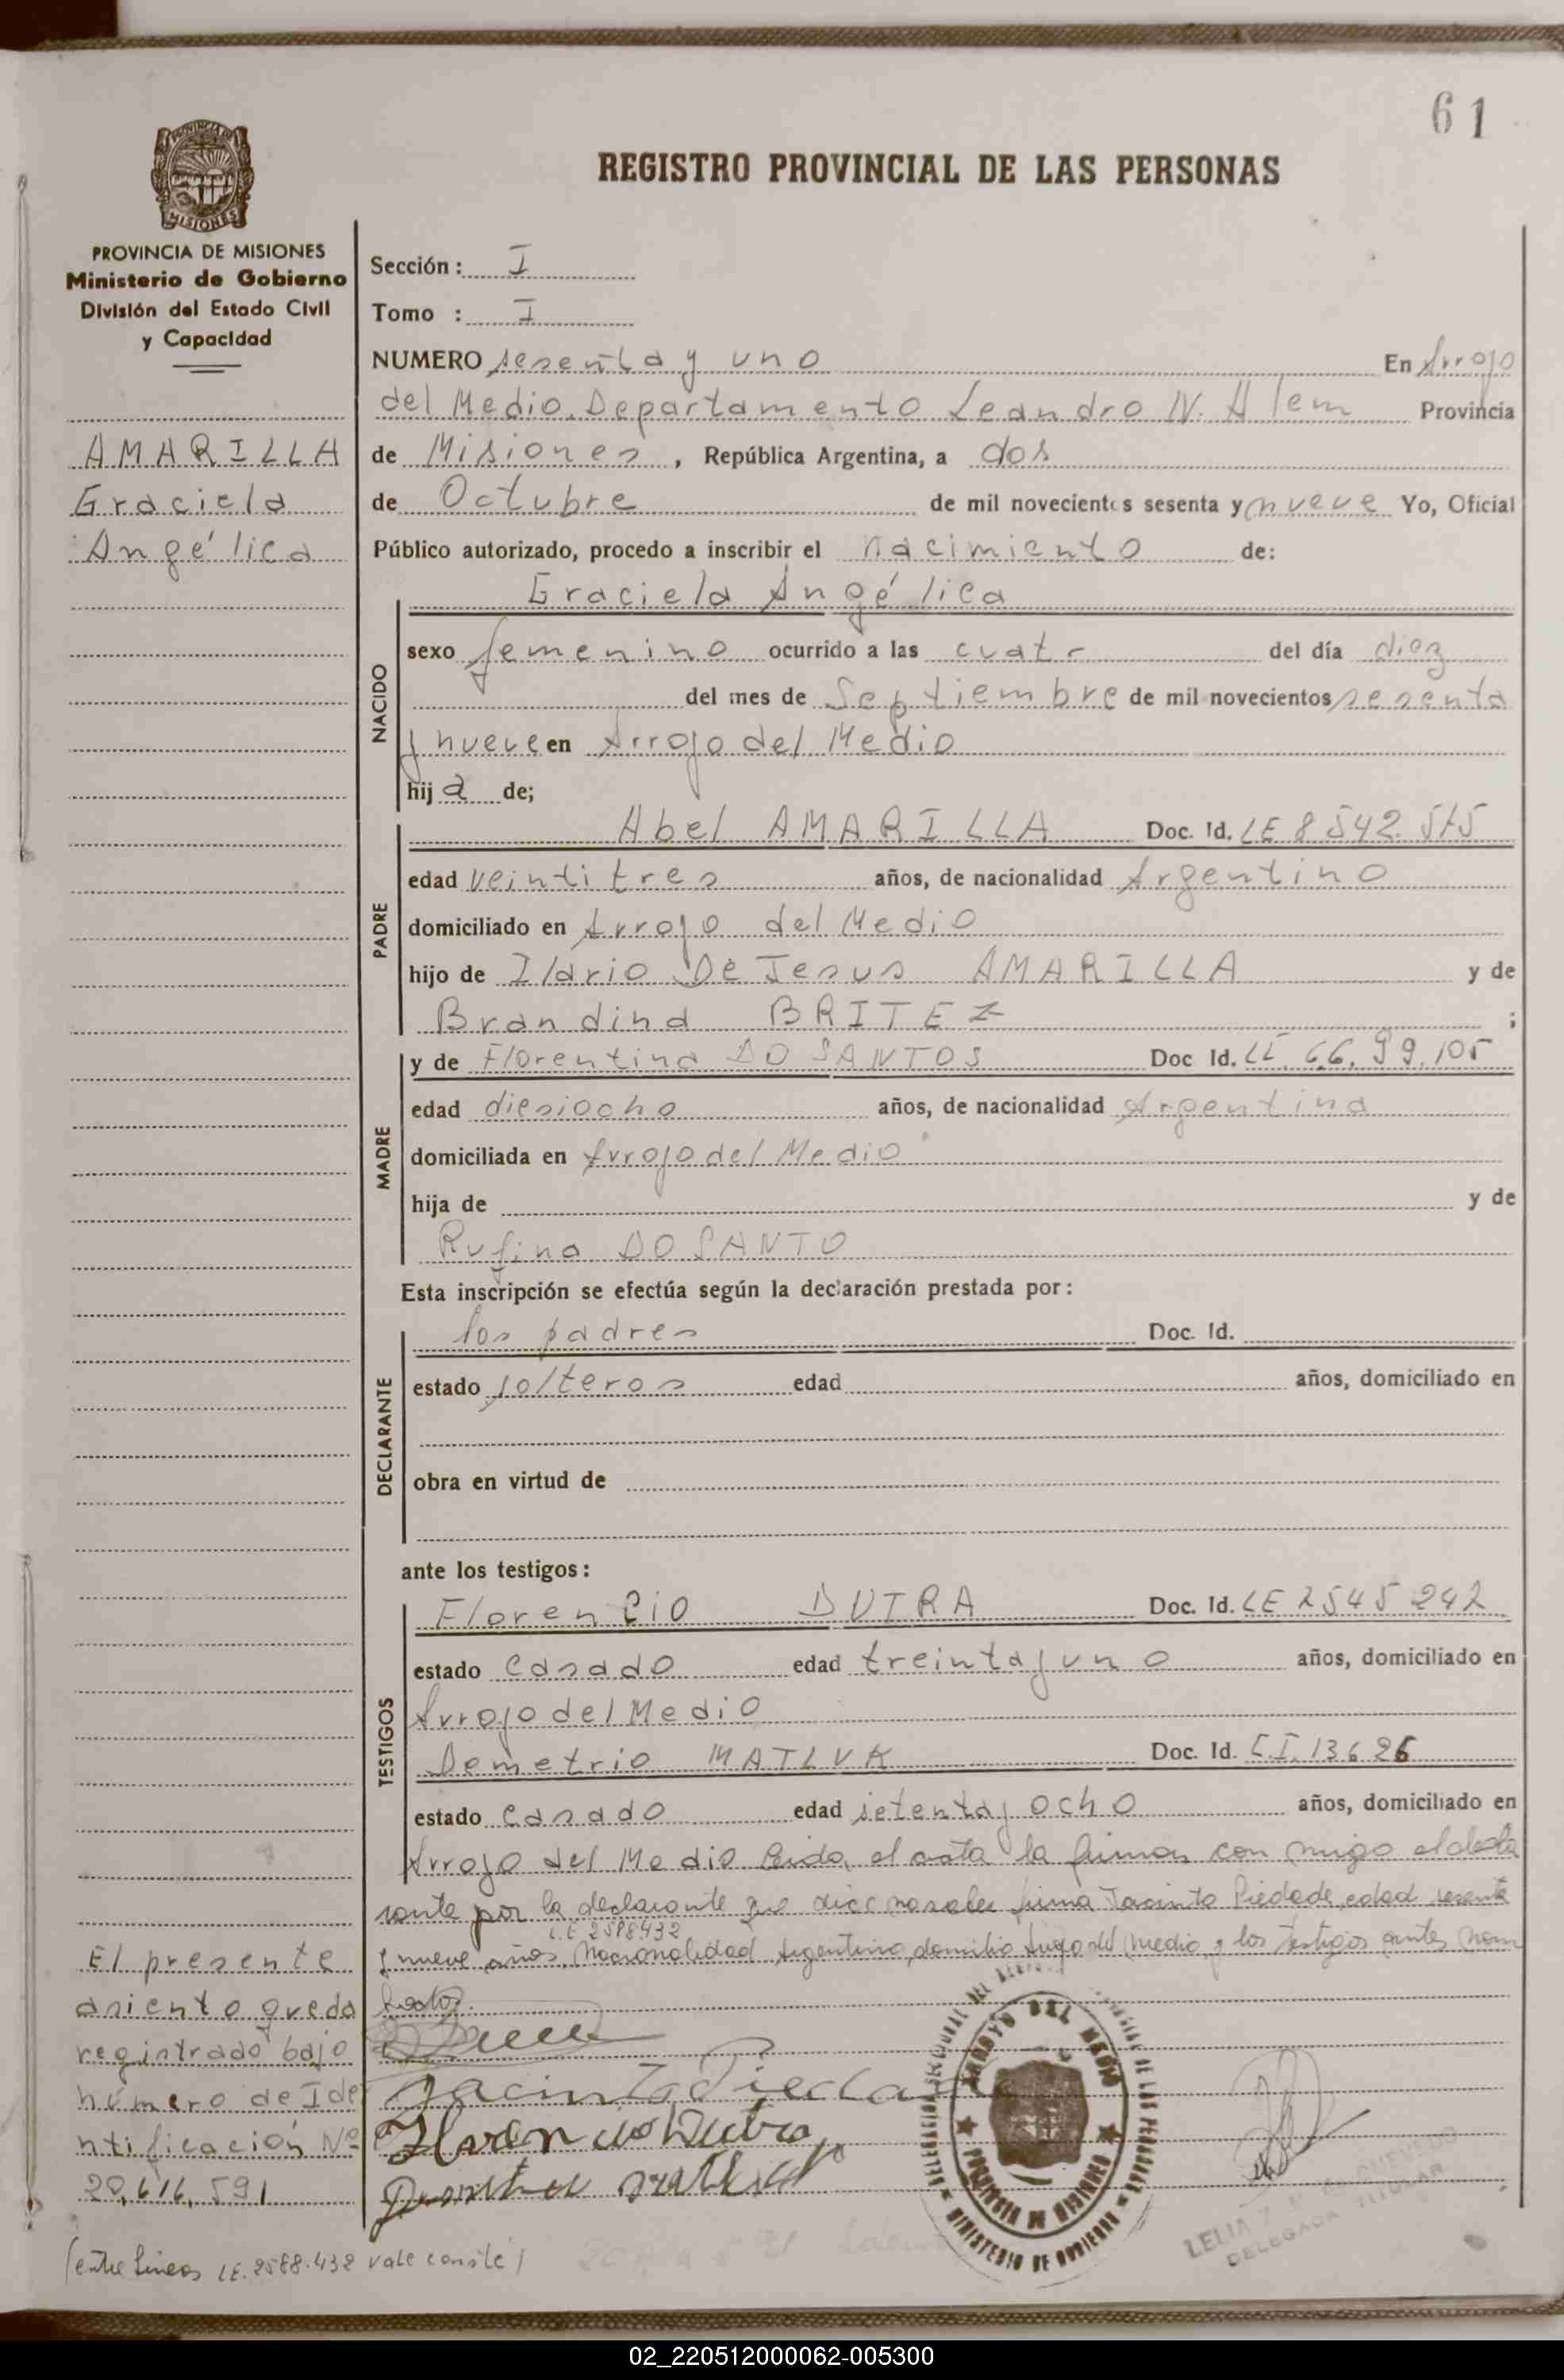 61
REGISTRO PROVINCIAL DE LAS PERSONAS
PROVINCIA DE MISIONES
Ministerio de Gobierno
División del Estado Civil
y Capacidad
AMARILLA
Graciela
Angélica
Sección: I
Tomo : I
NUMERO sesenta y uno En Arroyo
del Medio Departamento Leandro N. Alem Provincia
de Misiones, República Argentina, a dos
de Octubre de mil novecientos sesenta y nueve Yo, Oficial
Público autorizado, procedo a inscribir el nacimiento de:
NACIDO
Graciela Angélica
sexo femenino ocurrido a las cuatro del día diez
del mes de Septiembre de mil novecientos sesenta
y nueve en Arroyo del Medio
hija de;
PADRE
Abel AMARILLA Doc. Id. LE 8542.575
edad veintitres años, de nacionalidad Argentino
domiciliado en Arroyo del Medio
hijo de Ilario De Jesus AMARILLA y de
Brandina BRITEZ ;
MADRE
y de Florentina DO SANTOS Doc Id. 66.99.105
edad diesiocho años, de nacionalidad Argentina
domiciliada en Arroyo del Medio
hija de y de
Rufina DO SANTO
Esta inscripción se efectúa según la declaración prestada por:
DECLARANTE
los padres Doc. Id.
estado solteros edad años, domiciliado en
obra en virtud de
ante los testigos:
TESTIGOS
Florencio DUTRA Doc. Id. LE 2545242
estado casado edad treinta y uno años, domiciliado en
Arroyo del Medio
Demetrio MATLUK Doc. Id. C.I. 13626
estado casado edad setenta y ocho años, domiciliado en
Arroyo del Medio Leida, el acta la firman con migo el decla
rante por la declarante que dice no saber firma Jacinto Piedade, edad sesenta
L.E 2588432
y nueve años, Nacionalidad Argentino, domicilio Arroyo del Medio y los testigos antes nom
brados
Jacinto Pieda
Florencio Dutra
El presente
asiento queda
registrado bajo
número de Ide
ntificación Nº
20.616.591
(entre lineas LE. 2588.432 vale conste)
DELEGACION SECCIONAL DEL REGISTRO PROVINCIAL DE LAS PERSONAS
ARROYO DEL MEDIO
PROVINCIA DE MISIONES
MINISTERIO DE GOBIERNO
LELIA
DELEGADA TITULAR
02_220512000062-005300